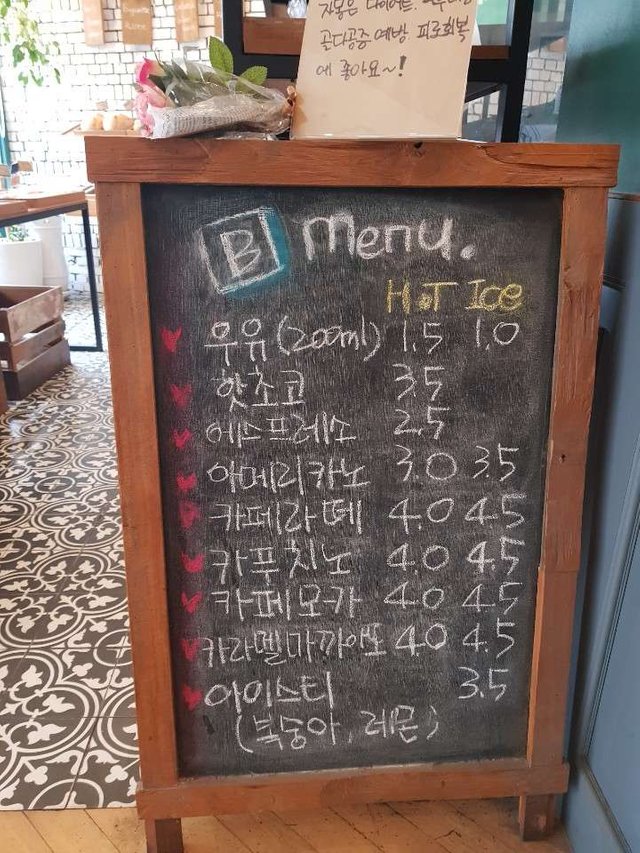 자몽은 다이어트,
골다공증 예방 피로회복
에 좋아요~!
B menu.
HOT Ice
우유(200ml) 1.5 1.0
핫초코 3.5
에스프레소 2.5
아메리카노 3.0 3.5
카페라떼 4.0 4.5
카푸치노 4.0 4.5
카페모카 4.0 4.5
카라멜마끼아또 4.0 4.5
아이스티 3.5
(복숭아, 레몬)